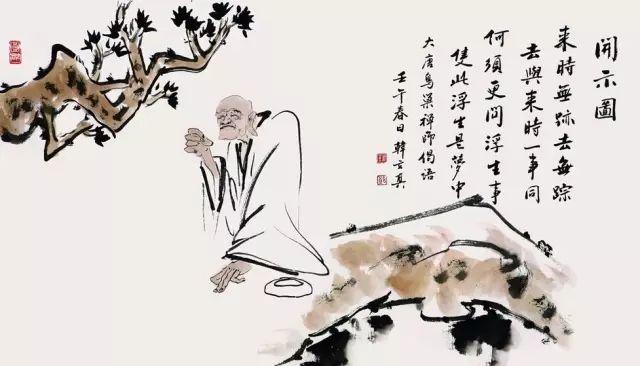 開示圖
来時無跡去無踪
去與来時一事同
何須更問浮生事
隻此浮生是夢中
大唐鳥巢禅師偈語
壬午春日韓玄真